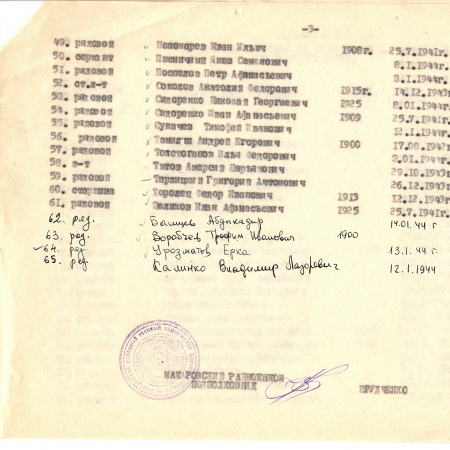 -3-
49. рядовой Пономарев Иван Ильич 1908г. 25.7.1941г.
50. сержант Пшеничный Яков Семенович 8.1.1944г.
51. рядовой Поспелов Петр Афанасьевич 3.1.1944г.
52. ст.л-т Соколов Анатолий Федорович 1915г. 14.12.1943г.
53. рядовой Сидоренко Николай Георгиевич 1925 8.01.1944г.
54. рядовой Сидоренко Иван Афанасьевич 1909 25.7.1941г.
55. рядовой Сукачев Тимофей Иванович 12.1.1944г.
56. рядовой Андрей Егорович 1900 17.08.1942г.
57. рядовой Толстоганов Илья Федорович 3.01.1944г.
58. л-т Титов 29.10.1943г.
59. рядовой Григорий Антонович 26.12.1943г.
60. старшина Хоролец Федор Иванович 1913 12.12.1943г.
61. рядовой Иван Афанасьевич 1925 25.7.1941г.
62. ряд. Абдукадир 14.01.44 г.
63. ряд. Воробьев Трофим Иванович 1900
64. ряд. Урозматов Ерка 13.1.44 г.
65. ряд. Калинко Владимир Лазоревич 12.1.1944
МАКАРОВСКИЙ РАЙВОЕНКОМ
ПОДПОЛКОВНИК ПРУДЧЕНКО